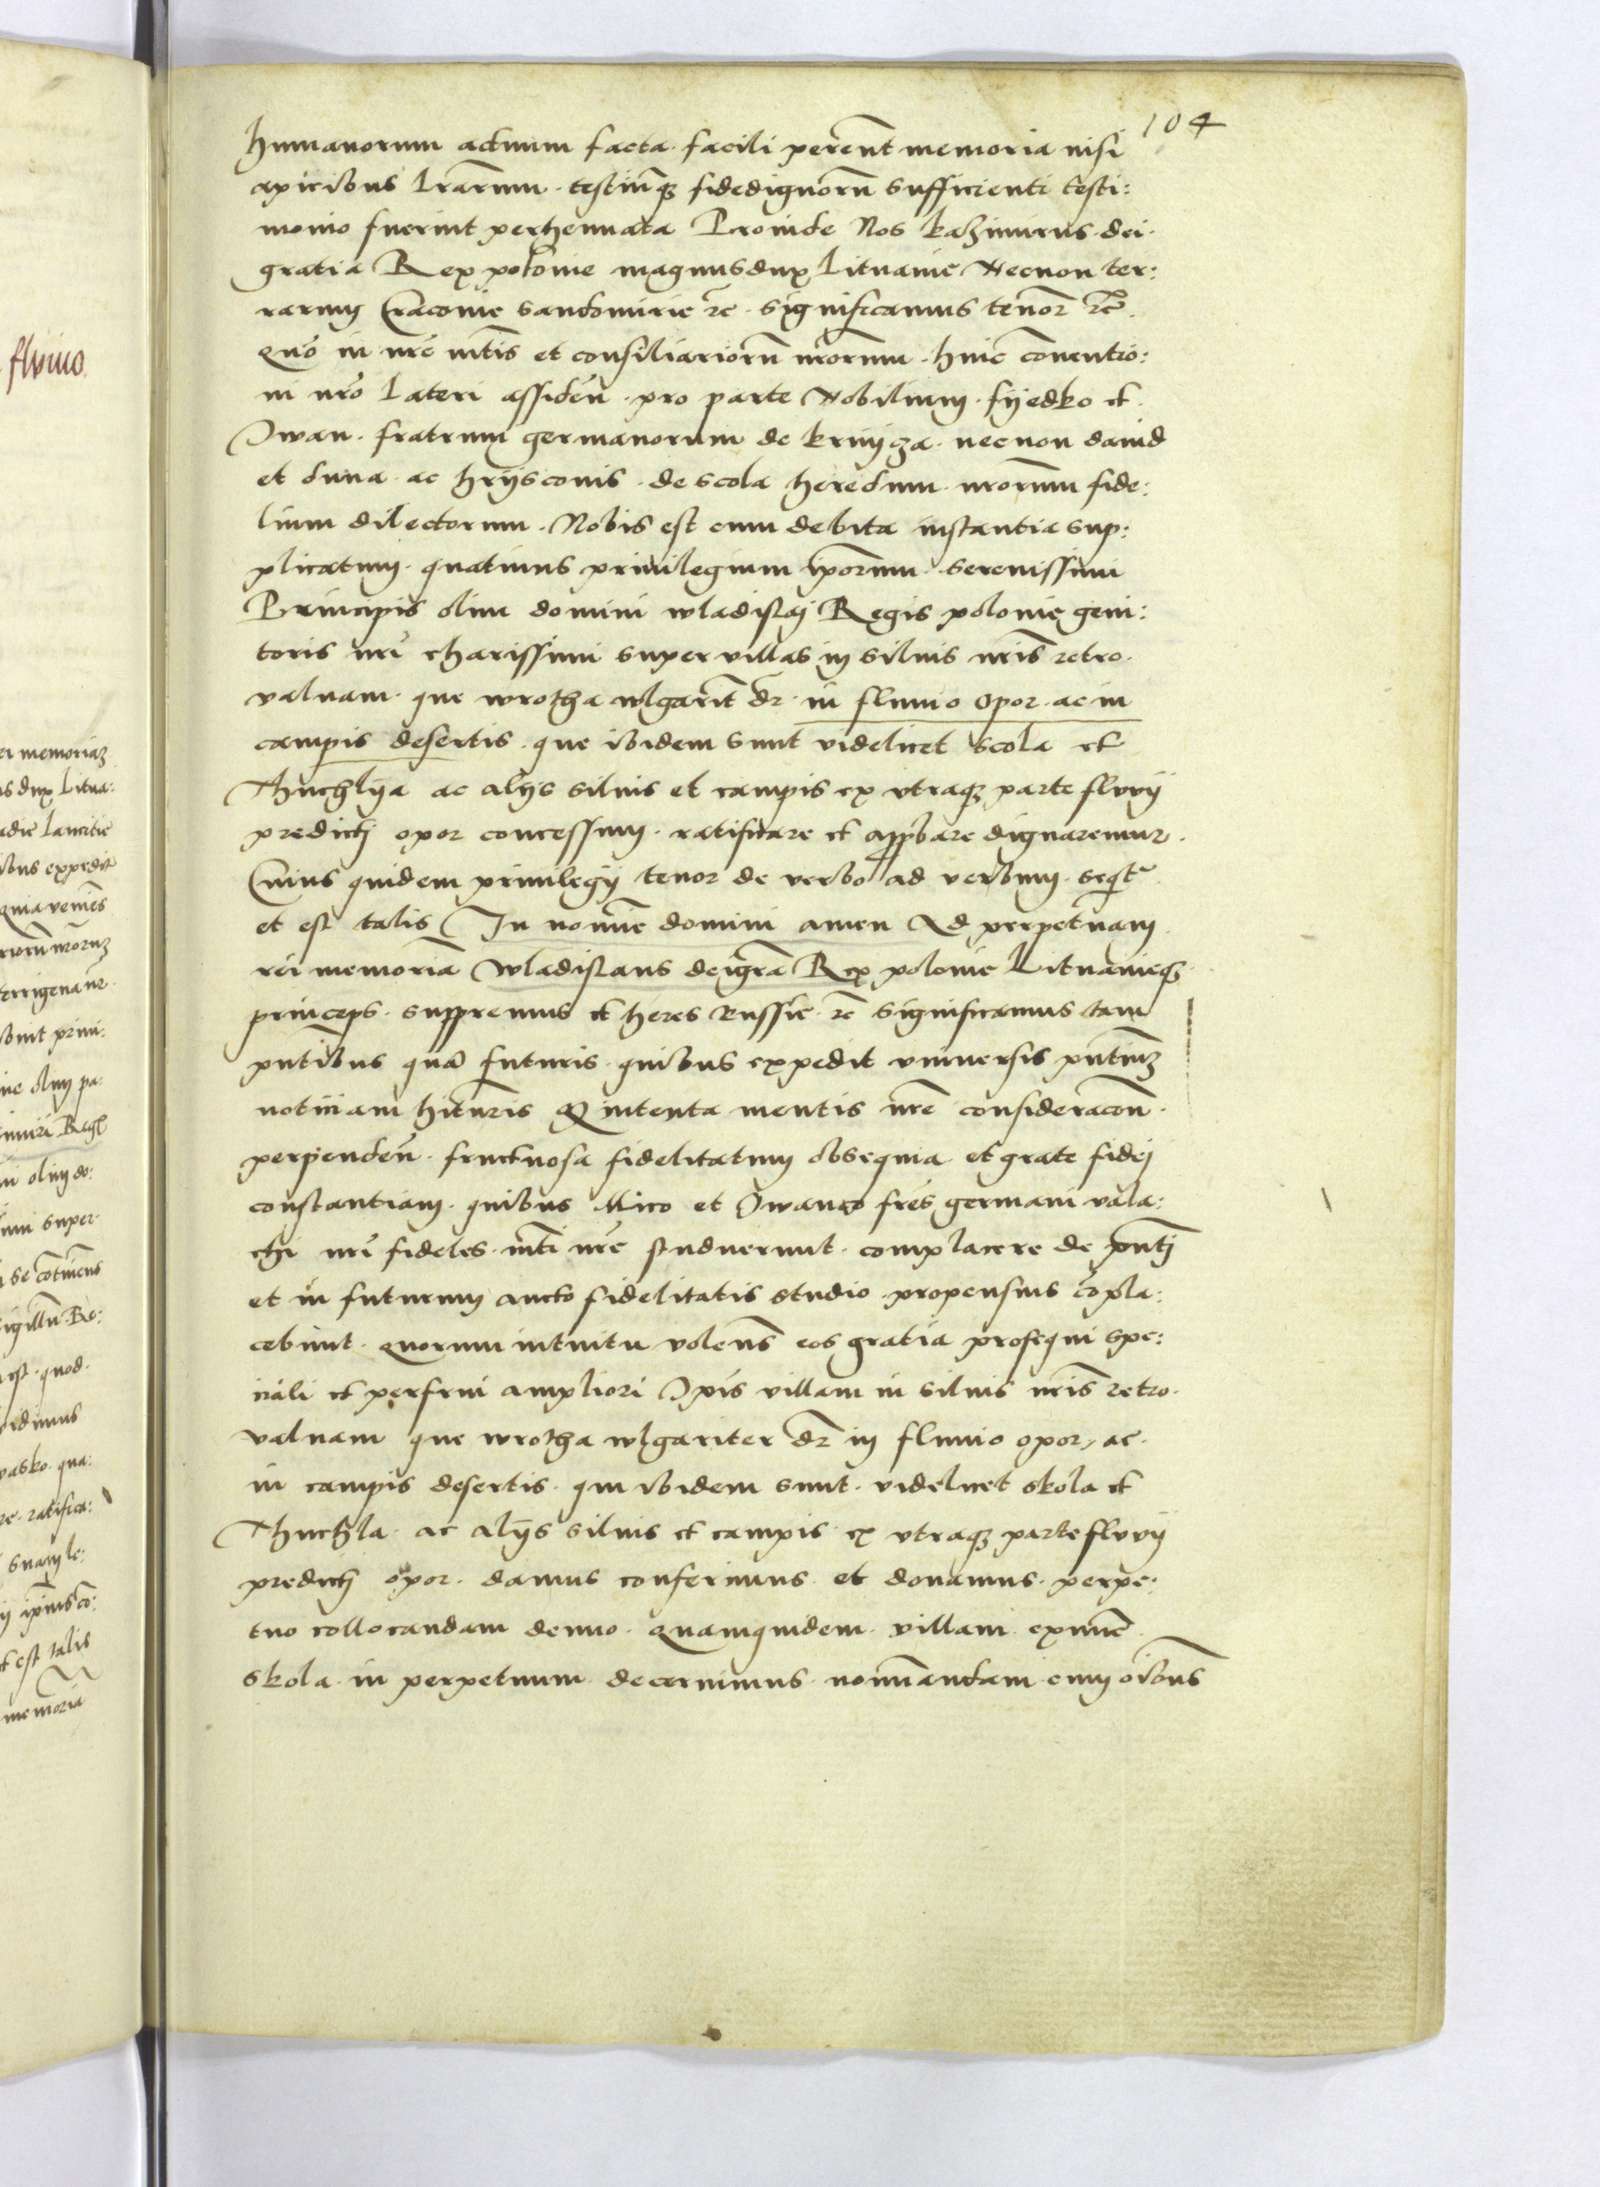 104
humanorum actuum facta facili perent memoria nisi
apicibus lrarum testiumq fidedignoru sufficienti testi:
monio fuerint perhennata Proinde Nos kazimirus dei
gratia Rex polonie magnusdux Lituanie Necnon ter:
rarum Cracovie Sandomirie rc significamus tenor rc
Quo in nre mtis et consiliarioru nrorum huic conventio:
ni nro lateri assiden pro parte Nobilium fyedko et
Iwan fratrum germanorum de krinycza necnon david
et duna ac hrysconis de scola heredum nrorum fide:
lium dilectorum Nobis est cum debita instantia sup:
plicatum quatinus privilegium iporum serenissimi
Principis olim domini wladislai Regis polonie geni:
toris nri charissimi super villas in silvis nris retro
valvam que wrotha wlgarit dr in fluvio opor ac in
campis desertis que ibidem sunt videlicet scola et
Thuchlya ac alys silvis et campis ex utraq parte fluvy
predicti opor concessum ratificare et approbare dignaremur
Cuius quidem privilegy tenor de verbo ad verbum seqt
et est talis In nomie domini amen Ad perpetuam
rei memoria Wladislaus dei gra Rex polonie Lituanieq
princeps suppremus et heres Russie rc significamus tam
pntibus qua futuris quibus expedit universis pntium
notitiam hituris Q intenta mentis nre consideracon
perpenden fructuosa fidelitatum obsequia et grate fidei
constantiam quibus Mico et Iwanco fres germani vala:
chi nri fideles mti nre studuerunt complacere de pnti
et in futurum aucto fidelitatis studio propensius copla:
cebunt quorum intuitu volens eos gratia prosequi spe:
ciali et perfrui ampliori Ipis villam in silvis nris retro
valvam que wrotha wlgariter dr in fluvio opor, ac
in campis desertis qui ibidem sunt videlicet skola et
Thuchla ac alys silvis et campis ex utraq parte fluvy
predicti opor damus conferimus et donamus perpe:
tuo collocandam denuo Quamquidem villam exnuc
skola in perpetuum decernimus nominandam cum oibus
fluvio